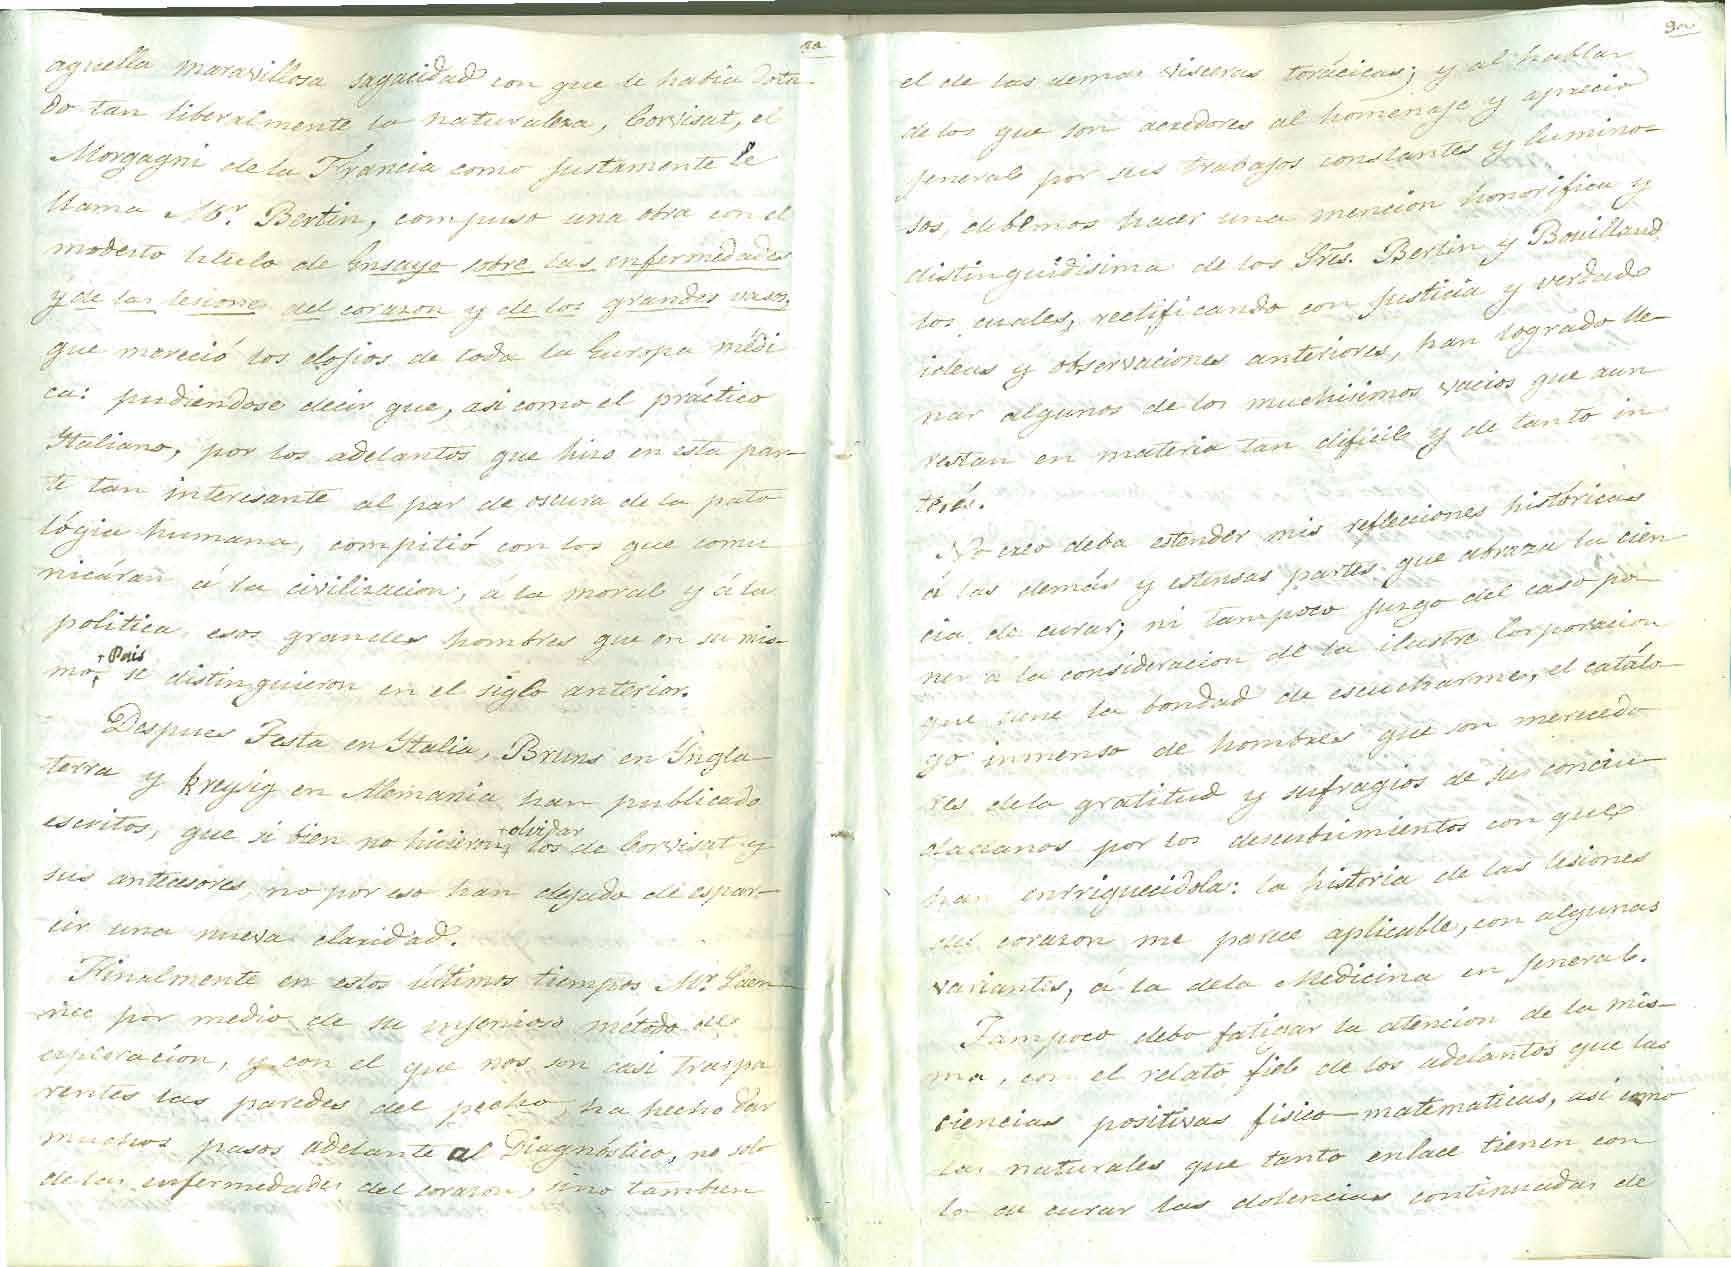 8a
aquella maravillosa sagacidad con que le habia dota-
do tan liberalmente la naturaleza, Corvisat, el
Morgagni de la Francia como justamente le
llama Mr. Bertin, compuso una obra con el
modesto titulo de Ensayo sobre las enfermedades
y de las lesiones del corazon y de los grandes vasos,
que mereció los elojios de toda la Europa médi
ca: pudiendose decir que, asi como el práctico
Italiano, por los adelantos que hizo en esta par-
te tan interesante al par de oscura de la pato
lógia humana, compitió con los que comu
nicáran á la civilizacion, á la moral y á la
politica, esos grandes hombres que en su mis-
mo, + Pais se distinguieron en el siglo anterior.
Despues Testa en Italia, Bruns en Ingla
terra y Kreysig en Alemania han publicado
escritos, que si bien no hicieron + olvidar los de Corvisat y
sus antecesores, no por eso han dejado de espar-
cir una nueva claridad.
Finalmente en estos últimos tiempos Mr. Laen-
nec por medio de su injenioso método de
esploracion, y con el que nos son casi traspa
rentes las paredes del pecho, ha hecho dar
muchos pasos adelante al Diagnóstico, no solo
de las enfermedades del corazon, sino tambien
9a
el de las demas visceras torácicas; y al hablar
de los que son acredores al homenaje y aprecio
jeneral por sus trabajos constantes y lumino-
sos, debemos hacer una mencion honorifica y
distinguidisima de los Sres. Bertin y Bouillaud,
los cuales, rectificando con justicia y verdad
ideas y observaciones anteriores, han logrado lle-
nar algunos de los muchisimos vacios que aun
restan en materia tan dificil y de tanto in
terés.
No creo deba estender mis reflecciones históricas
á las demás y estensas partes que abraza la cien
cia de curar; ni tampoco juzgo del caso po-
ner á la consideracion de la ilustre Corporacion
que tiene la bondad de escucharme, el catálo-
go inmenso de hombres que son merecedo
res de la gratitud y sufragios de sus conciu-
dadanos por los descubrimientos con que
han enrriquecidola: la historia de las lesiones
del corazon me parece aplicable, con algunas
variantes, á la de la Medicina en jeneral.
Tampoco debo fatigar la atencion de la mis-
ma, con el relato fiel de los adelantos que las
ciencias positivas fisico-matematicas, asi como
las naturales que tanto enlace tienen con
la de curar las dolencias continuadas de